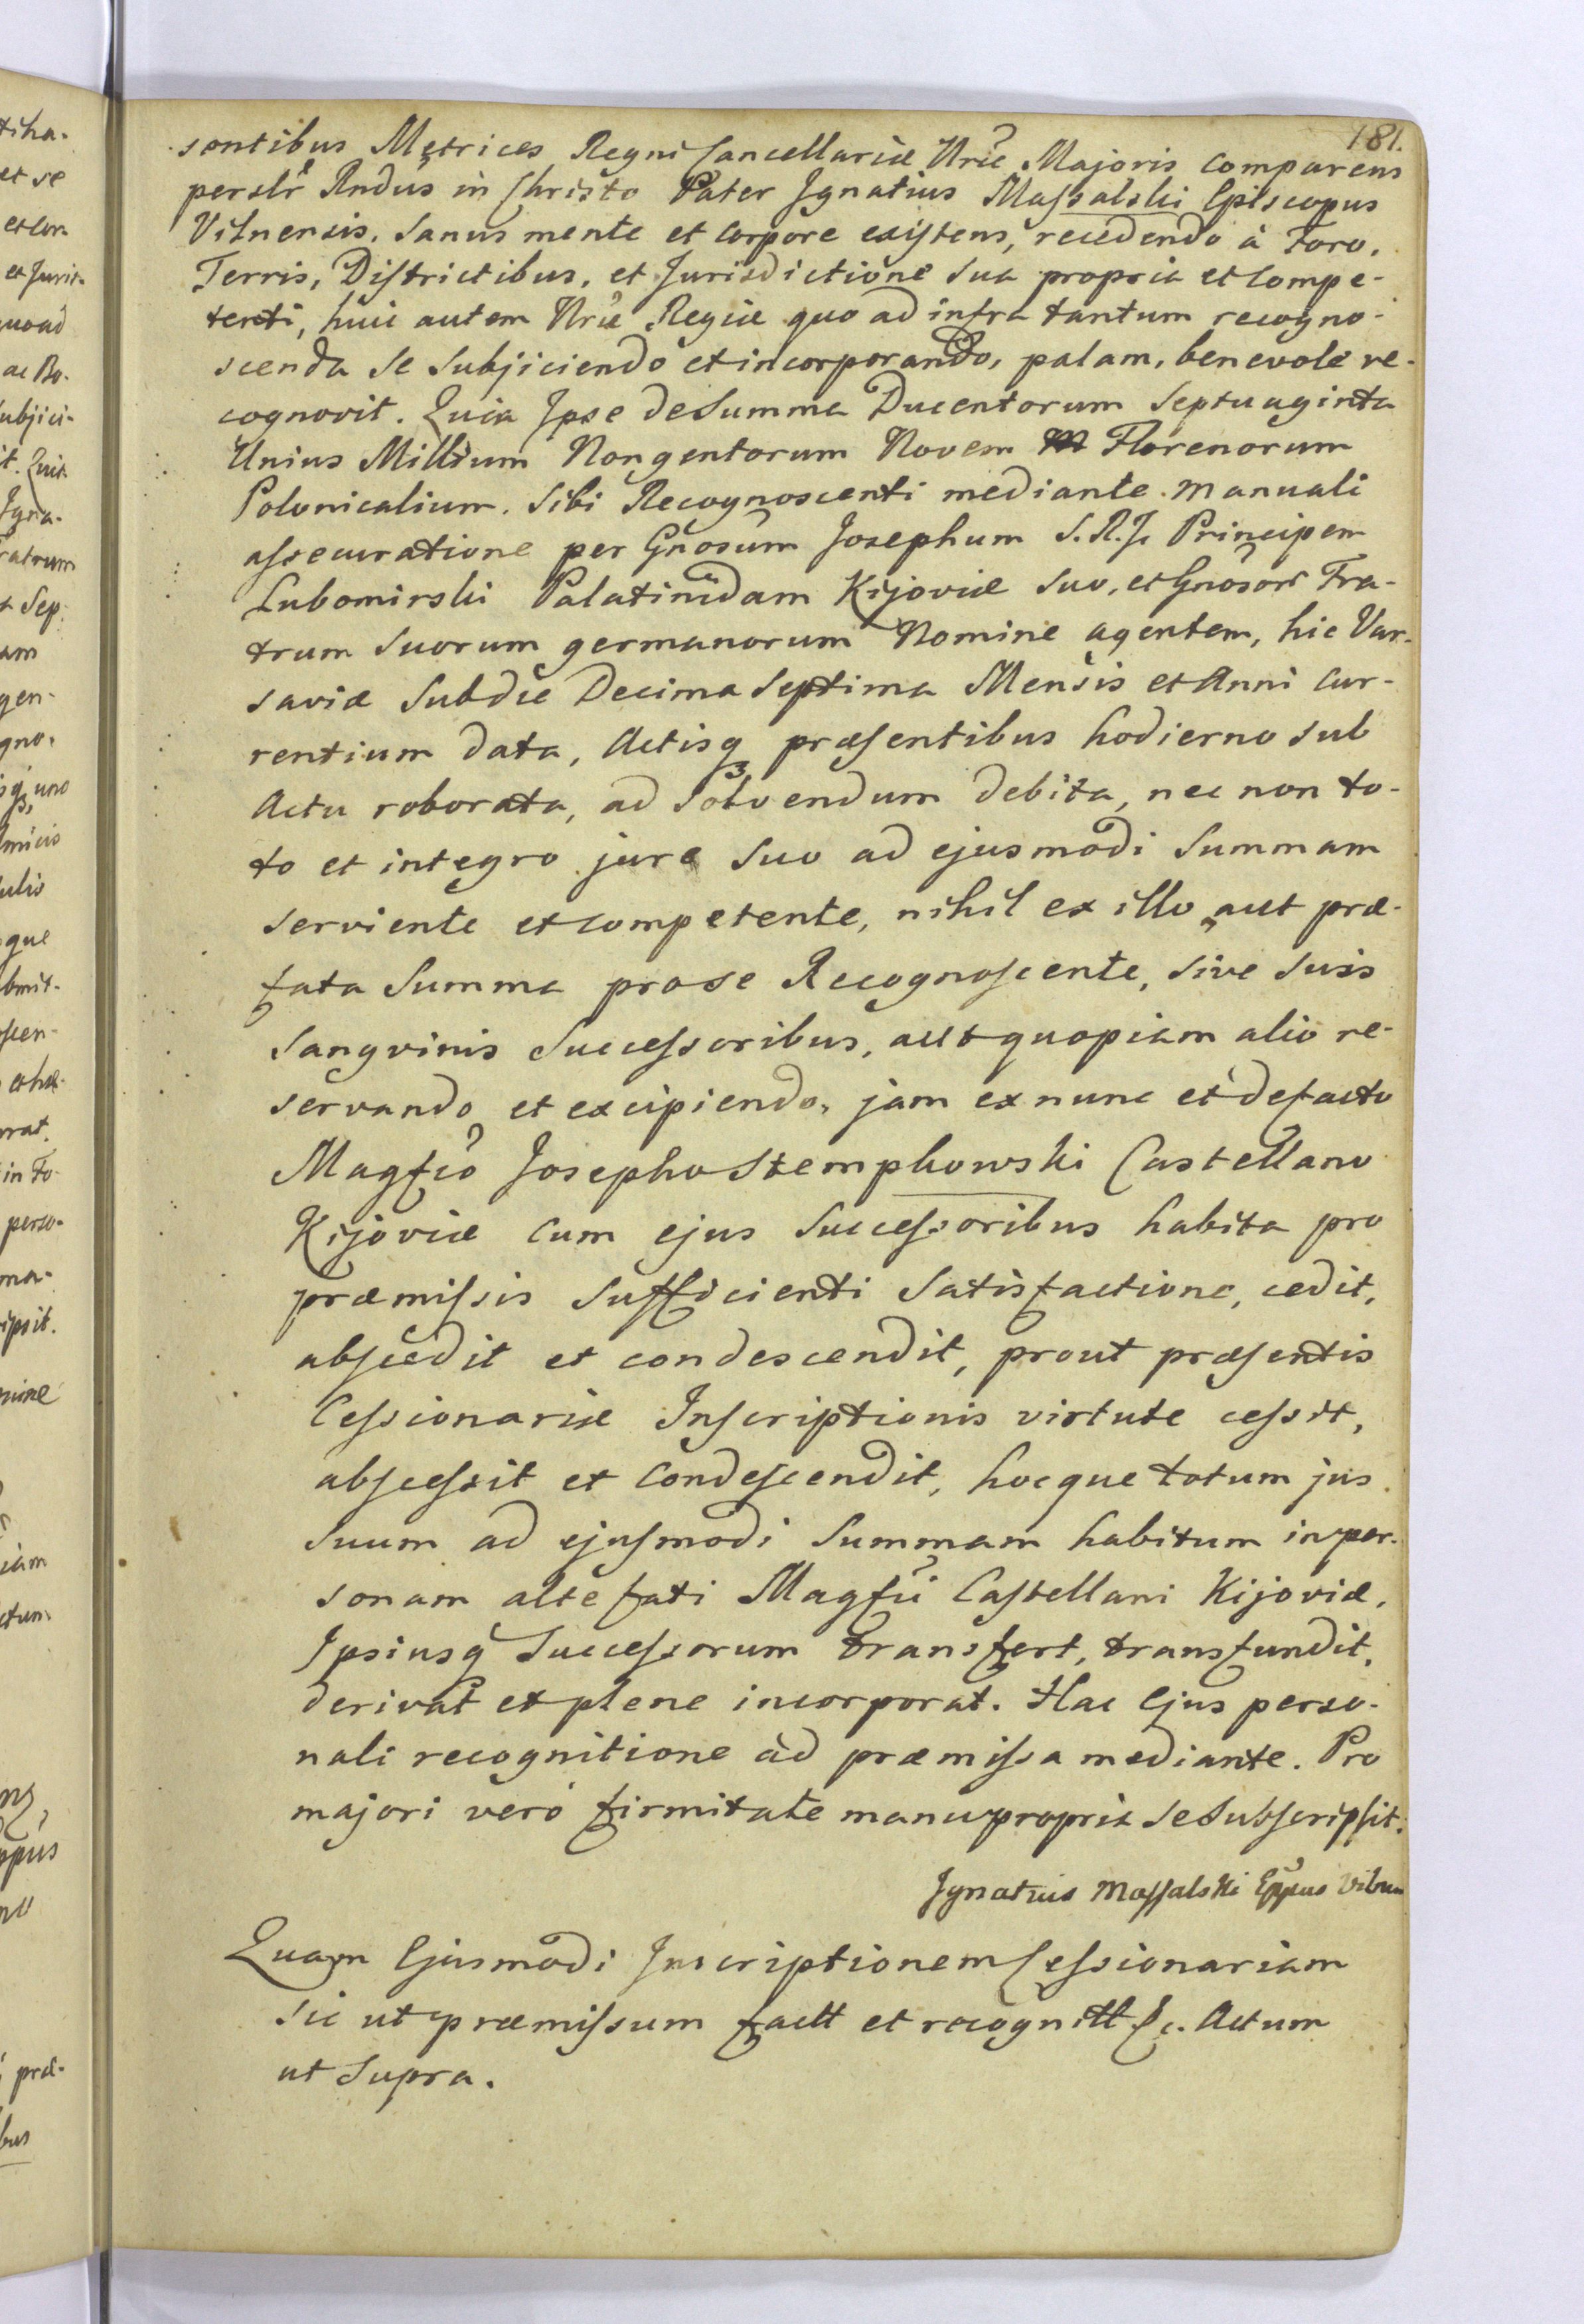 181.
sentibus Metrices Regni Cancellariæ Nræ Majoris comparens
perslr̃ Rndus in Christo Pater Ignatius Massalski Episcopus
Vilnensis, sanus mente et corpore existens, recedendo à Foro,
Terris, Districtibus, et Jurisdictione sua propria et compe-
tenti, huic autem Nræ Regiæ quo ad infra tantum recogno-
scenda se subjiciendo et incorporando, palam, benevole re-
cognovit. Quia Ipse de Summa Ducentorum Septuaginta
Unius Millium Nongentorum Novem Florenorum
Polonicalium. Sibi Recognoscenti mediante manuali
assecuratione per Gnosum Josephum S.R.I. Principem
Lubomirski Palatinidam Kijoviæ suo, et Gnosor̃ Fra-
trum suorum germanorum Nomine agentem, hic Var-
saviæ subdie Decima Septima Mensis et Anni cur-
rentium data, Actisq3 præsentibus hodierno sub
Actu roborata, ad solvendum debita, nec non to-
to et integro jure suo ad ejusmodi Summam
serviente et competente, nihil ex illo aut præ-
fata Summa pro se Recognoscente, sive suis
Sangvinis Successoribus, aut quopiam alio re-
servando et excipiendo, jam ex nunc et defacto
Magfco Josepho Stempkowski Castellano
Kijoviæ cum ejus Successoribus habita pro
præmissis sufficienti satisfactione, cedit,
abscedit et condescendit, prout præsentis
Cessionariæ Inscriptionis virtute cessit,
abscessit et condescendit, hocque totum jus
suum ad ejusmodi Summam habitum in per-
sonam alte fati Magfci Castellani Kijoviæ,
Ipsiusq Successorum transfert, transfundit,
derivat et plene incorporat. Hac Ejus perso-
nali recognitione ad præmissa mediante. Pro
majori verò firmitate manu propria se subscripsit.
Ignatius Massalski Eppus Vilnen
Quam Ejusmodi Inscriptionem Cessionariam
sic ut præmissum factt et recognitt &c. Actum
ut supra.